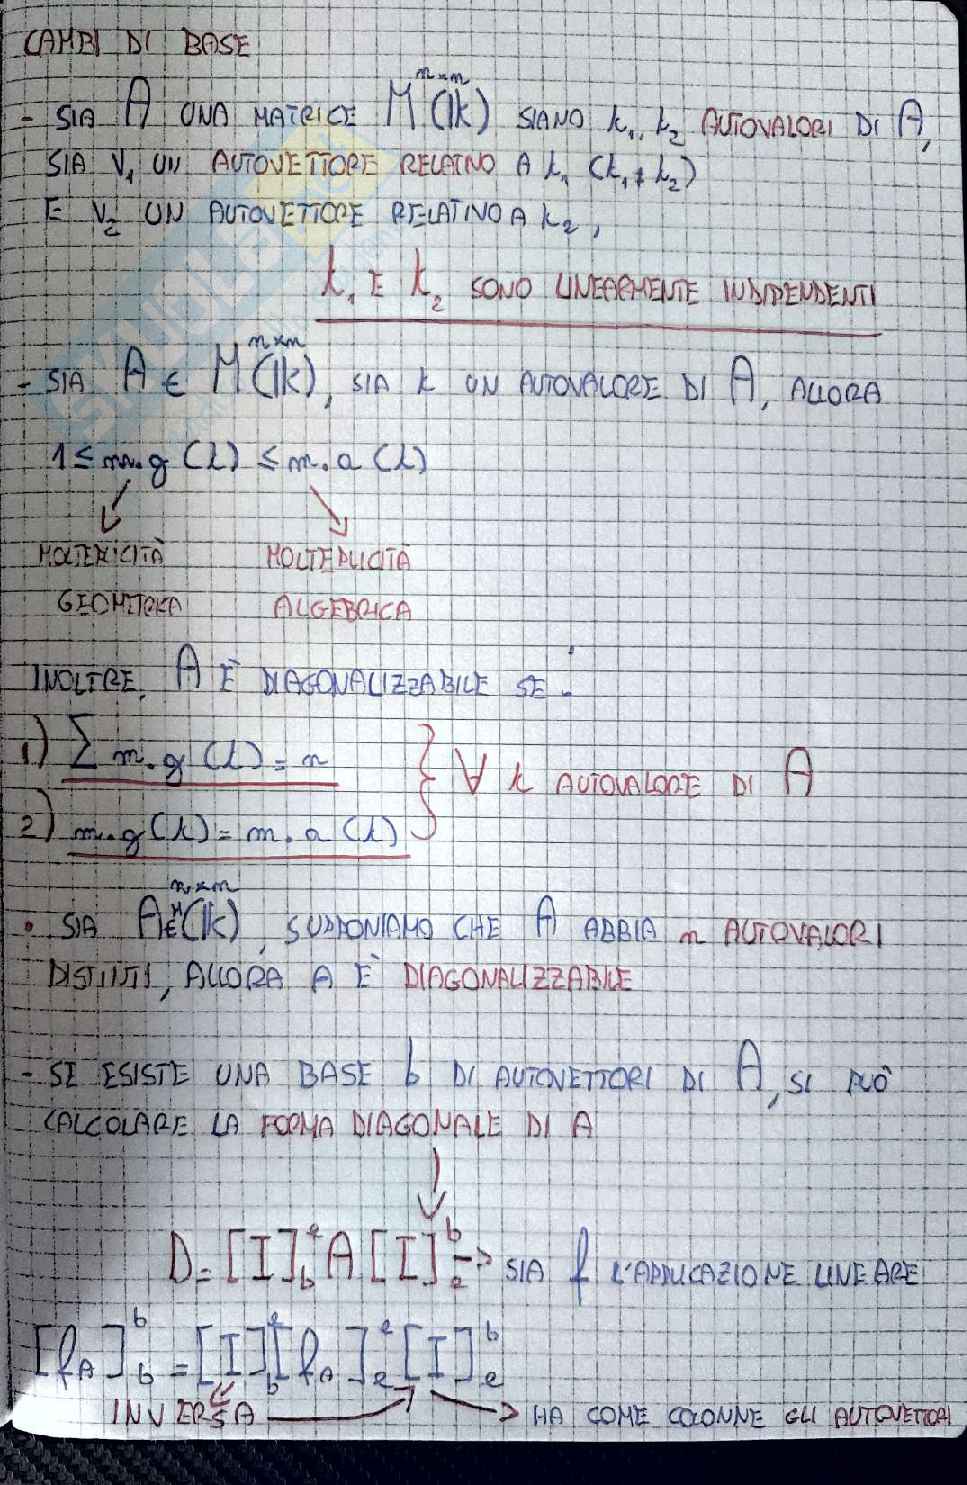 CAMBI DI BASE
n×n
- SIA A UNA MATRICE M(K) SIANO k₁, k₂ AUTOVALORI DI A,
SIA V₁ UN AUTOVETTORE RELATIVO A k₁ (k₁ ≠ k₂)
E V₂ UN AUTOVETTORE RELATIVO A k₂,
k₁ E k₂ SONO LINEARMENTE INDIPENDENTI
n×n
- SIA A ∈ M(K), SIA k UN AUTOVALORE DI A, ALLORA
1 ≤ m.g (λ) ≤ m.a (λ)
MOLTEPLICITÀ MOLTEPLICITÀ
GEOMETRICA ALGEBRICA
INOLTRE, A È DIAGONALIZZABILE SE:
1) ∑ m.g (λ) = n
∀ k AUTOVALORE DI A
2) m.g(λ) = m.a (λ)
n×n
• SIA A∈M(K), SUPPONIAMO CHE A ABBIA n AUTOVALORI
DISTINTI, ALLORA A È DIAGONALIZZABILE
- SE ESISTE UNA BASE b DI AUTOVETTORI DI A, SI PUÒ
CALCOLARE LA FORMA DIAGONALE DI A
D = [I]ᵉ_b A [I]ᵇ_e → SIA f L'APPLICAZIONE LINEARE
[f_A]ᵇ_b = [I]ᵉ_b [f_A]ᵉ_e [I]ᵇ_e
INVERSA → HA COME COLONNE GLI AUTOVETTORI